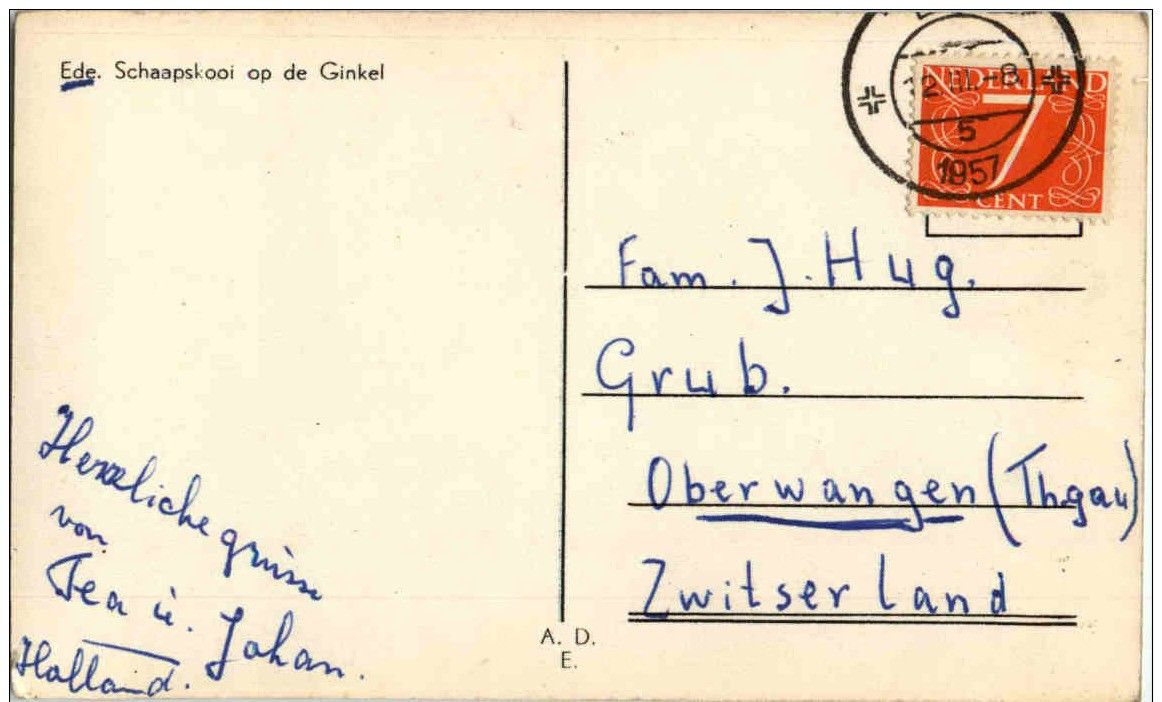 Ede. Schaapskooi op de Ginkel
12 III.-8
5
1957
NEDERLAND
7
CENT
Fam. J. Hug.
Grub.
Oberwangen (Thgau)
Zwitserland
Herzliche grüsse
von
Tea u. Johan.
Holland.
A. D.
E.